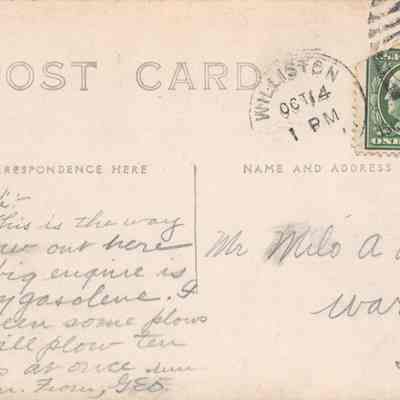 POST CARD
WILLISTON
OCT 14
1 PM
ONE
RRESPONDENCE HERE
NAME AND ADDRESS
This is the way
out here
big engine is
gasolene. I
een some plows
ill plow ten
s at once
From, GEO.
Mr Milo A
War